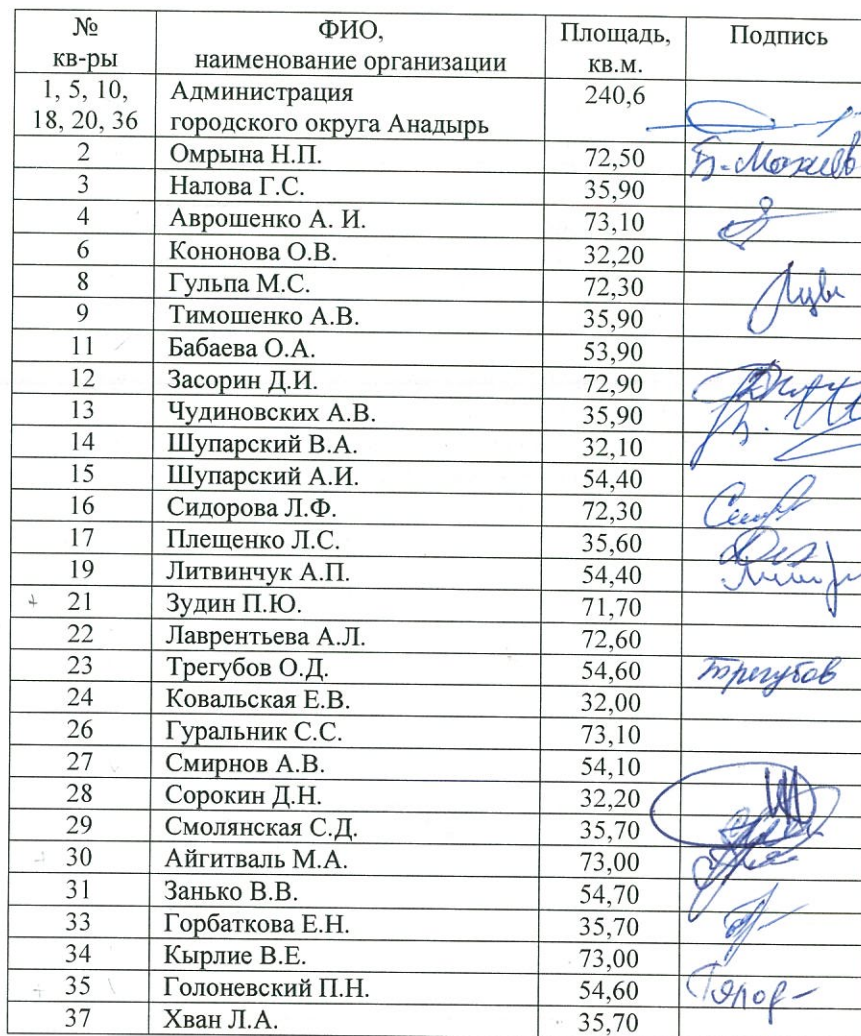 № кв-ры ФИО, наименование организации Площадь, кв.м. Подпись
1, 5, 10, 18, 20, 36 Администрация городского округа Анадырь 240,6
2 Омрына Н.П. 72,50
3 Налова Г.С. 35,90
4 Аврошенко А. И. 73,10
6 Кононова О.В. 32,20
8 Гульпа М.С. 72,30
9 Тимошенко А.В. 35,90
11 Бабаева О.А. 53,90
12 Засорин Д.И. 72,90
13 Чудиновских А.В. 35,90
14 Шупарский В.А. 32,10
15 Шупарский А.И. 54,40
16 Сидорова Л.Ф. 72,30
17 Плещенко Л.С. 35,60
19 Литвинчук А.П. 54,40
21 Зудин П.Ю. 71,70
22 Лаврентьева А.Л. 72,60
23 Трегубов О.Д. 54,60 Трегубов
24 Ковальская Е.В. 32,00
26 Гуральник С.С. 73,10
27 Смирнов А.В. 54,10
28 Сорокин Д.Н. 32,20
29 Смолянская С.Д. 35,70
30 Айгитваль М.А. 73,00
31 Занько В.В. 54,70
33 Горбаткова Е.Н. 35,70
34 Кырлие В.Е. 73,00
35 Голоневский П.Н. 54,60
37 Хван Л.А. 35,70